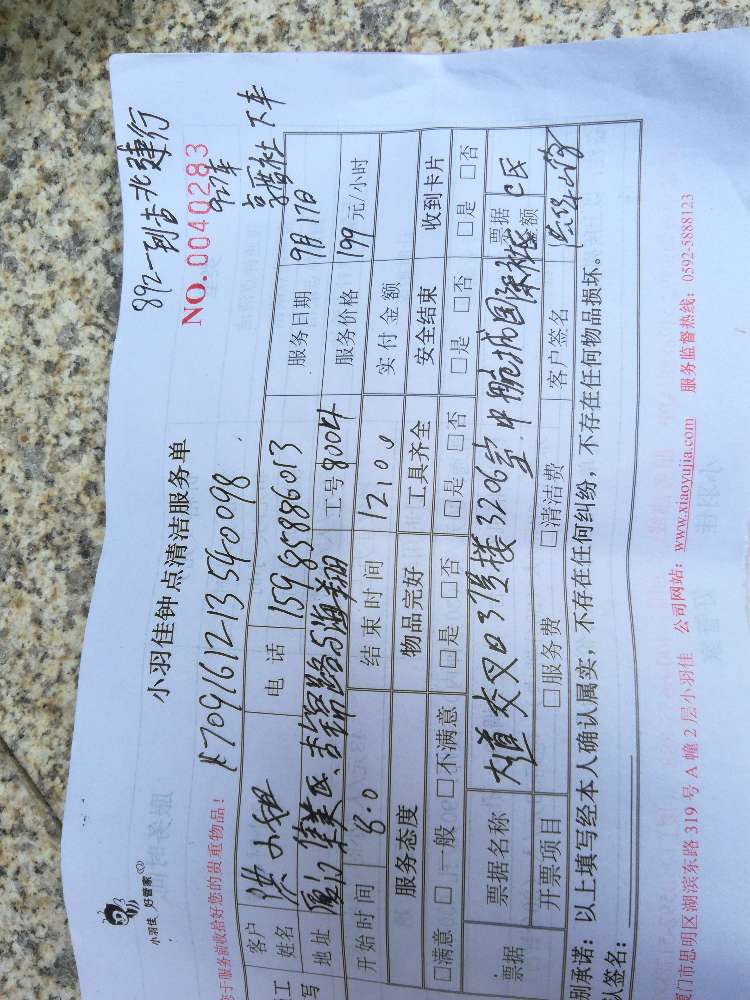 892一到吉
建行
NO.0040283
下车
小羽佳 好管家
小羽佳钟点清洁服务单
于服务前收拾好您的贵重物品！
A709161213540098
客户姓名 洪小姐 电话 15985886013 服务日期 9月17日
地址 厦门集美区 路与海翔 工号 8004 服务价格 199 元/小时
开始时间 8.0 结束时间 12:00 实付金额
服务态度 物品完好 工具齐全 安全结束 收到卡片
□满意 □一般 □不满意 □是 □否 □是 □否 □是 □否 □是 □否
票据 票据名称 大道交叉口3号楼3206室 中航城国际 票据金额
开票项目 □服务费 □清洁费 客户签名
别承诺：以上填写经本人确认属实，不存在任何纠纷，不存在任何物品损坏。
认签名：
门市思明区湖滨东路 319 号 A 幢 2 层小羽佳 公司网站：www.xiaoyujia.com 服务监督热线：0592-5888123